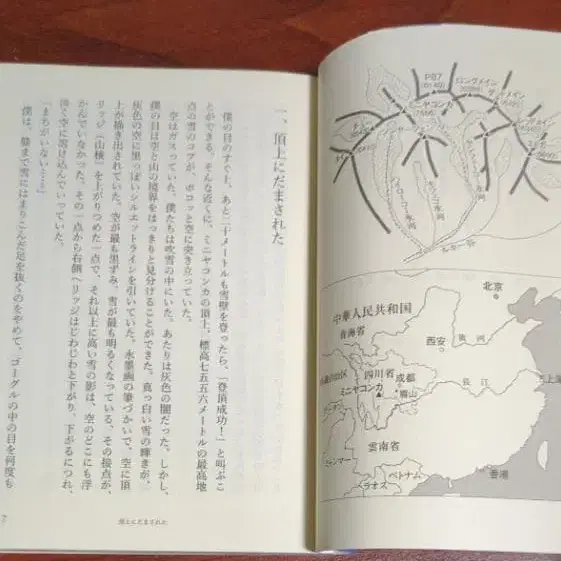 一、頂上にだまされた
僕の目のすぐ上、あと二十メートルも雪壁を登ったら、「登頂成功！」と叫ぶこ
とができる。そんな近くに、ミニヤコンカの頂上、標高七五五六メートルの最高地
点の雪のコブが、ポコッと空に突き立っていた。
空はガスっていた。僕たちは吹雪の中にいた。あたりは灰色の闇だった。しかし、
僕の目は空と山の境界をはっきりと見分けることができた。真っ白い雪の輝きが、
灰色の空に黒っぽいシルエットラインを引いていた。水墨画の筆づかいで、空に頂
上が描き出されていた。空が最も黒ずみ、雪が最も明るくなっている、その接点が、
リッジ（山稜）を上がりつめた一点で、それ以上に高い雪の影は、空のどこにも浮
かんでいなかった。その一点から右側へリッジはじわじわと下がり、下がるにつれ、
淡く空に溶け込んでいっていた。
「まちがいない……」
僕は、膝まで雪にはまりこんだ足を抜くのをやめて、ゴーグルの中の目を何度も
7
頂上にだまされた
ミニヤコンカ
氷河
中華人民共和国
北京
青海省
西安
黄河
四川省
成都
ミニヤコンカ
長江
上海
雲南省
ミャンマー
ベトナム
ラオス
香港